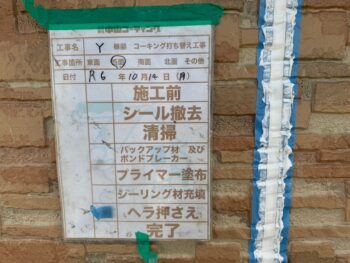 工事名 Y 様邸 コーキング打ち替え工事
工事箇所 東面 西面 南面 北面 その他
日付 R6年10月14日(月)
施工前
シール撤去
清掃
バックアップ材 及び
ボンドブレーカー
プライマー塗布
シーリング材充填
ヘラ押さえ
完了